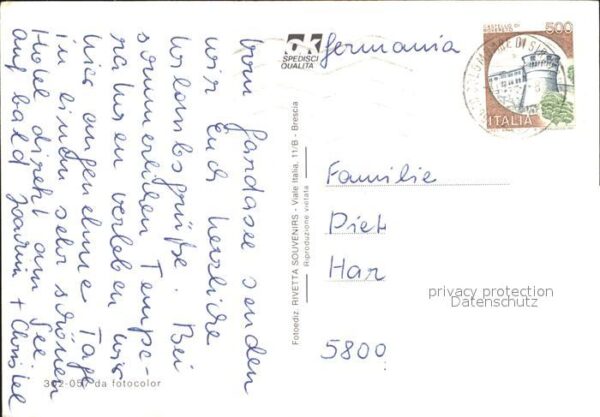 vom Gardasee senden
wir Euch herzliche
Urlaubsgrüße. Bei
sommerlichen Tempe-
raturen verleben wir
hier angenehme Tage
in einem sehr schönen
Hotel direkt am See
auf bald Joachim + Christel
OK
SPEDISCI
QUALITÀ
Germania
500
ITALIA
Fotoediz: RIVETTA SOUVENIRS - Viale Italia, 11/B - Brescia
Riproduzione vietata
Familie
Piet
Har
5800
privacy protection
Datenschutz
302-057 da fotocolor